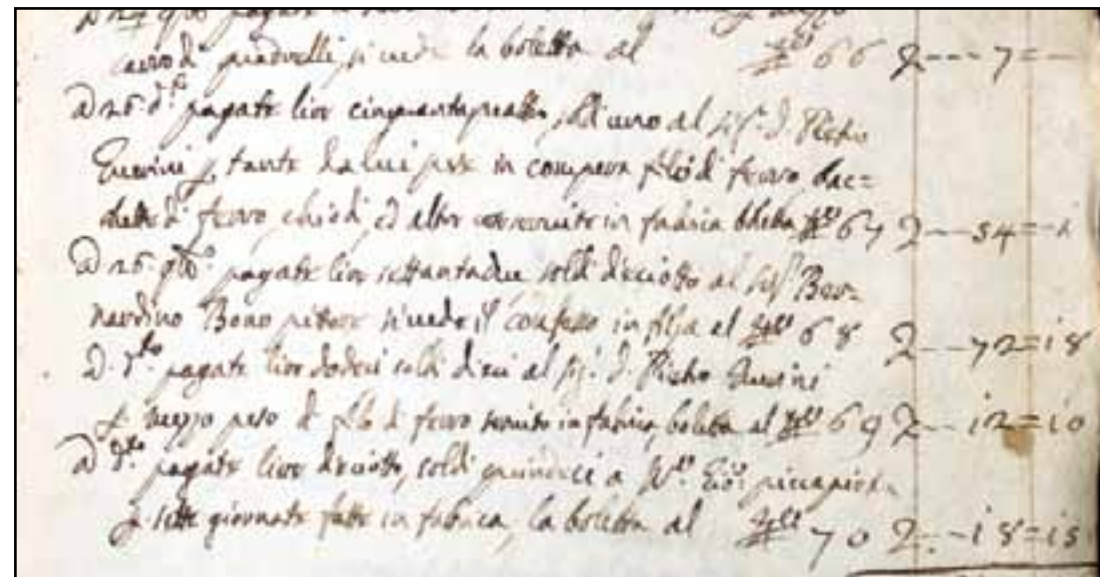 carro di quadrelli, si vede la boletta al N.º 66 L --- 7 = —
a 26 d.º pagate lire cinquantaquattro, soldi uno al sig. D. Pietro
Guerini p. tante da lui spese in compera filo di ferro bac=
chette di ferro chiodi, ed altro convenuto in fabrica bletta N.º 67 L -- 54 = -i
a 26 pagate lire settantadue soldi dieciotto al sig. Ber=
nardino Bono pittore si vede il confesso in filza al N.º 68 L -- 72 = i8
a d.º pagate lire dodeci soldi dieci al sig. D. Pietro Guerini
p. mezzo peso di filo di ferro servito in fabrica, boletta al N.º 69 L -- i2 = i0
a d.º pagate lire dieciotto, soldi quindeci a M.º Gio: piccapiere
p. sette giornate fatte in fabrica, la boletta al N.º 70 L. -- i8 = i5